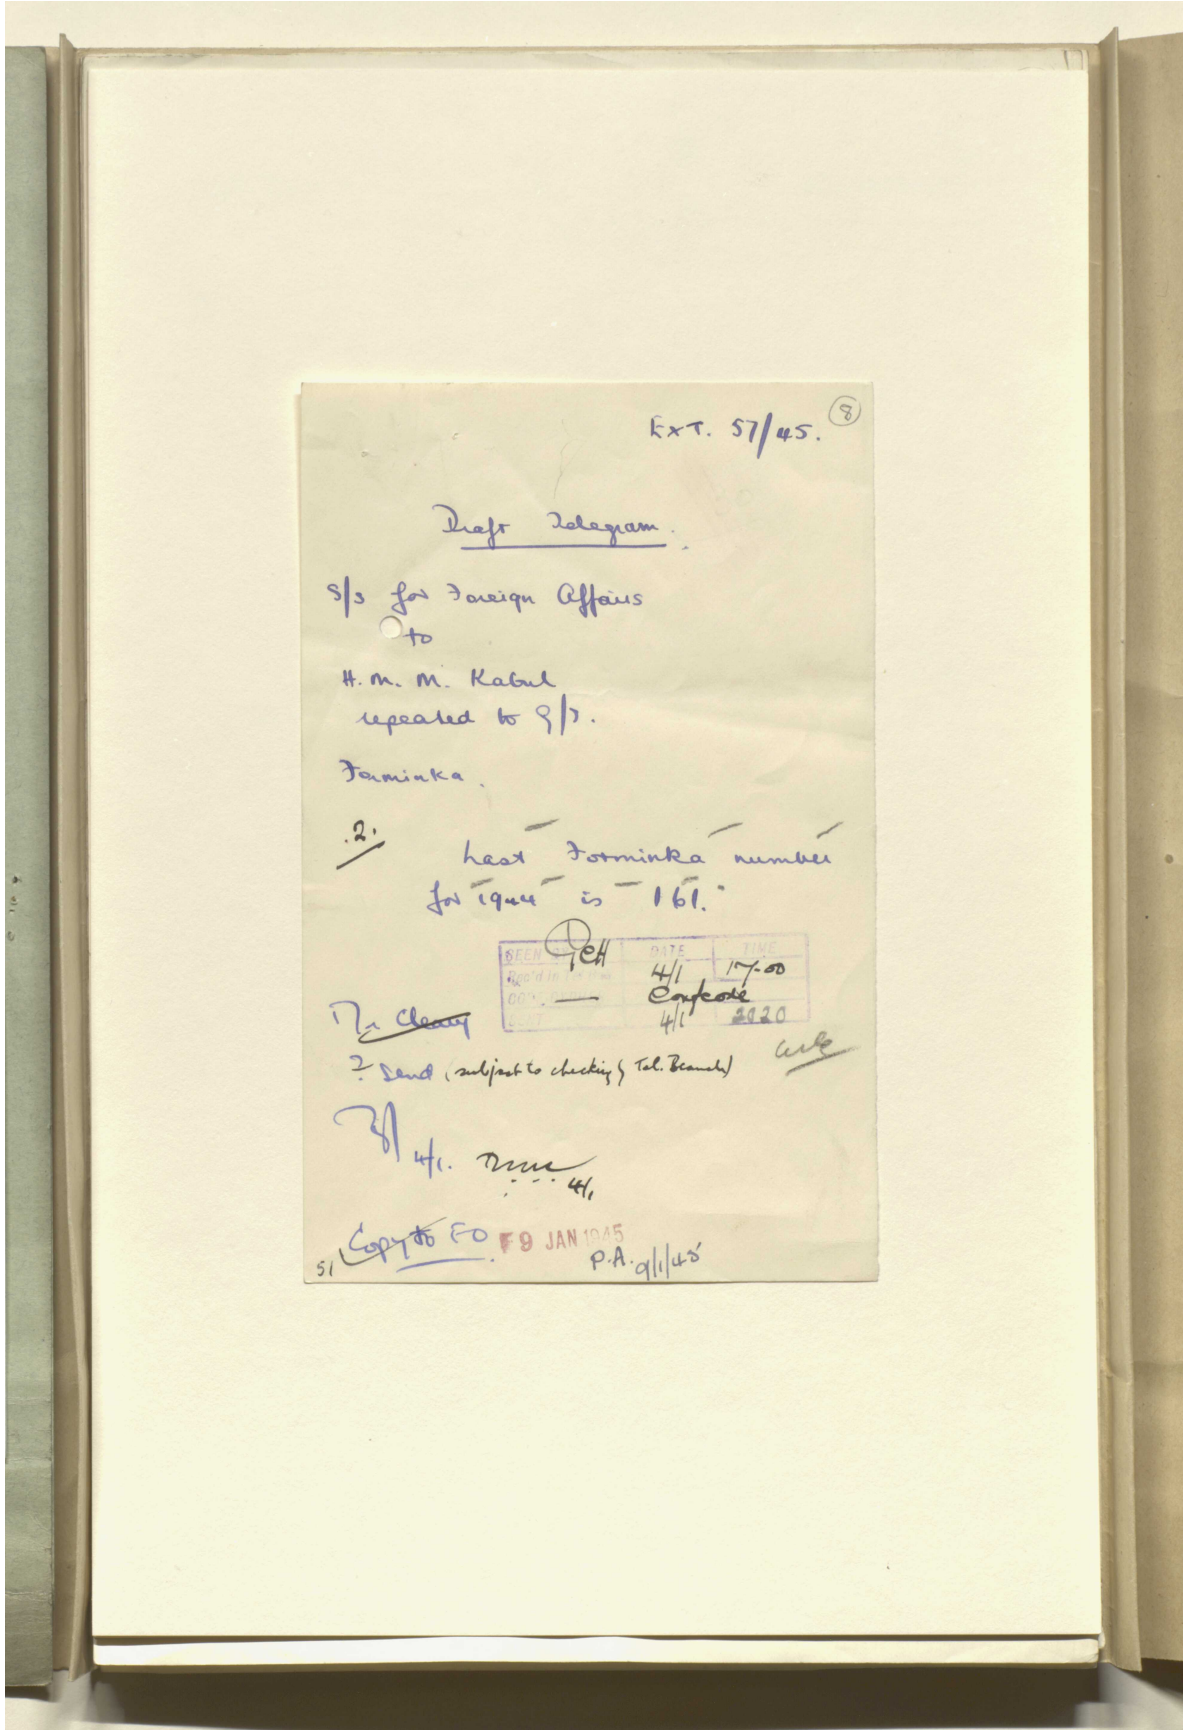 8
EXT. 57/45.
Draft Telegram.
S/S for Foreign Affairs
to
H.M.M. Kabul
repeated to G/I.
Forminka.
.2.
Last Forminka number
for 1944 is 161.
SEEN DATE TIME
4/1 17-00
4/1 2020
Mr Cleary
? Send (subject to checking by Tel. Branch)
4/1.
4/1
Copy to FO
9 JAN 1945
5/1
P.A. 9/1/45